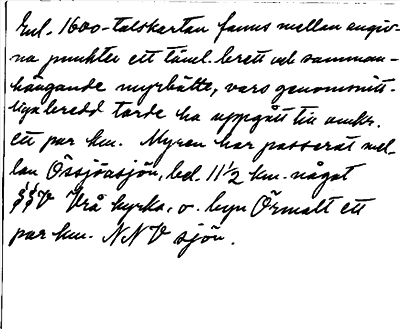 Enl. 1600-talskartan fanns mellan angiv-
na punkter ett täml. brett och samman-
hängande myrbälte, vars genomsnitt-
liga bredd torde ha uppgått till omkr.
ett par km. Myren har passerat mel-
lan Össjöasjön, bel. 11½ km. något
§§V Vrå kyrka, o. byn Örmalt ett
par km. NNV sjön.